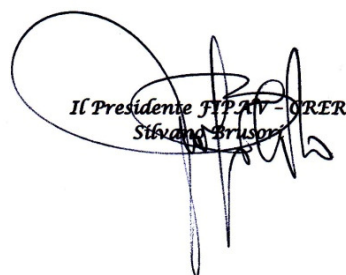 Il Presidente FIPAV – CRER
Silvano Brusori